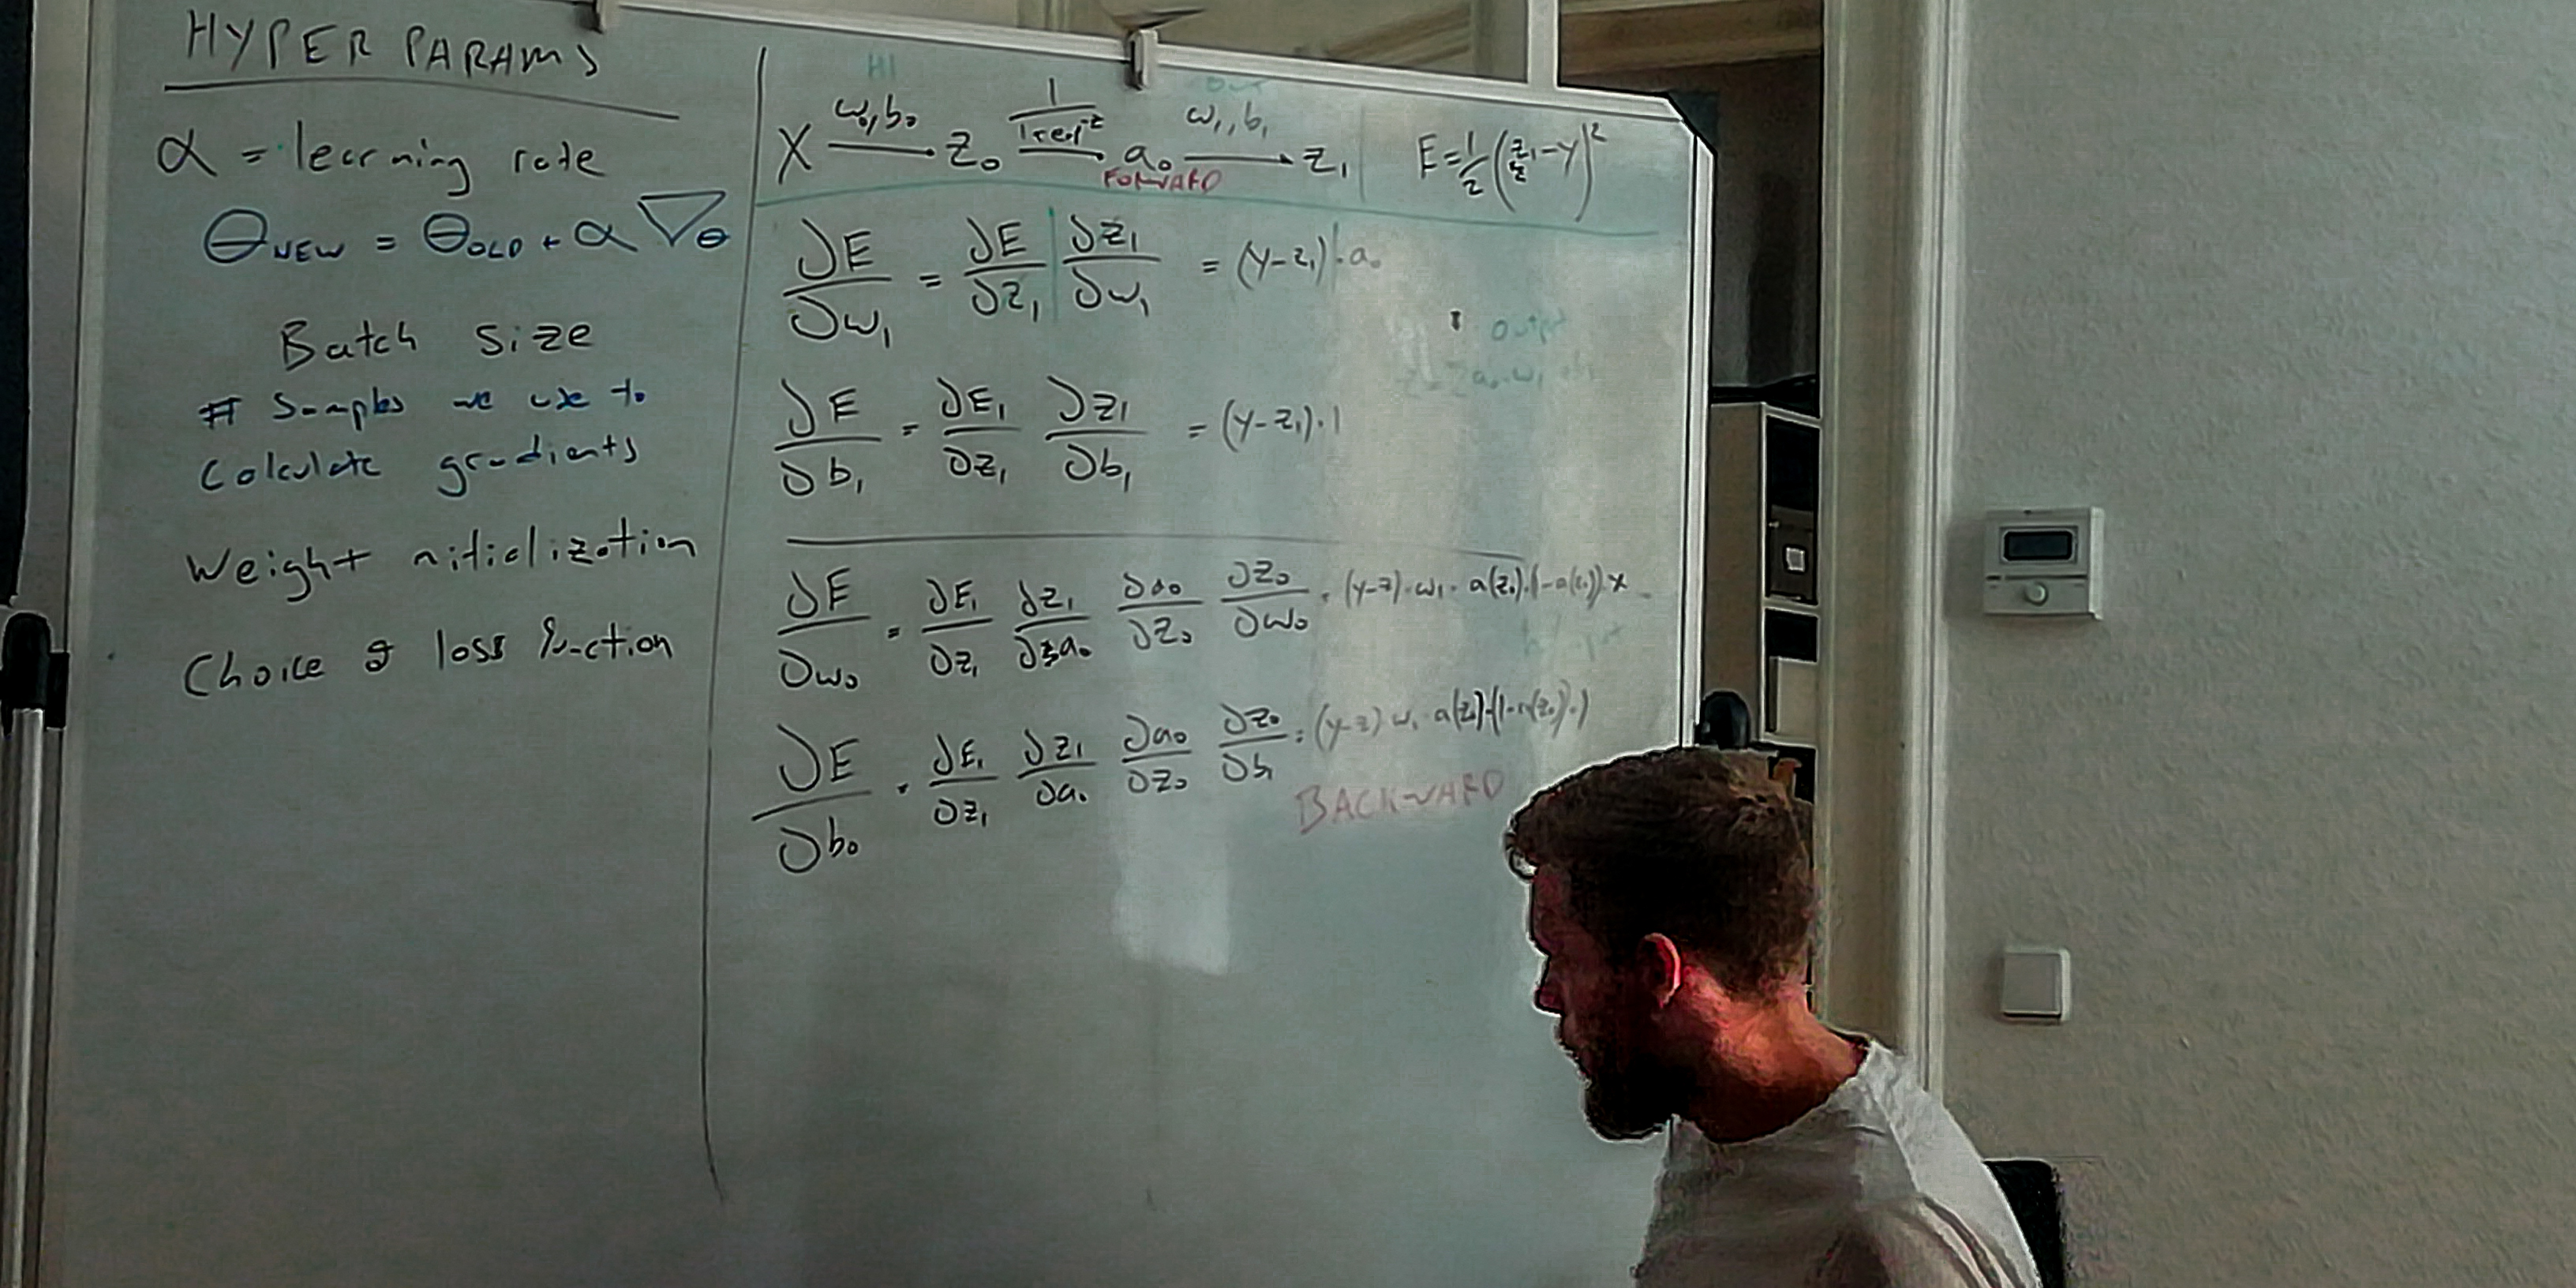 HYPER PARAMS
α = learning rate
θNEW = θOLD + α ∇θ
Batch size
# Samples we use to
Calculate gradients
Weight nitialization
Choice of loss function
H1
X →(w₀,b₀) z₀ → a₀ →(w₁,b₁) z₁
FORWARD
E = 1/2 (z₁-y)²
∂E/∂w₁ = ∂E/∂z₁ ∂z₁/∂w₁ = (y-z₁)·a₀
output
∂E/∂b₁ = ∂E₁/∂z₁ ∂z₁/∂b₁ = (y-z₁)·1
∂E/∂w₀ = ∂E₁/∂z₁ ∂z₁/∂a₀ ∂a₀/∂z₀ ∂z₀/∂w₀ = (y-z)·w₁·a(z₀)·(1-a(z₀))·x
∂E/∂b₀ = ∂E₁/∂z₁ ∂z₁/∂a₀ ∂a₀/∂z₀ ∂z₀/∂b₁ = (y-z)·w₁·a(z₀)·(1-a(z₀)·1
BACKWARD